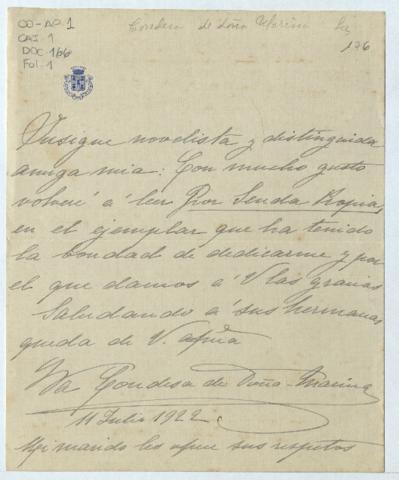 CO-Nº 1
CAJ-1
DOC-166
Fol-1
Condesa de doña Marina
176
Insigne novelista y distinguida
amiga mia: Con mucho gusto
volveré á leer Por Senda Propia,
en el ejemplar que ha tenido
la bondad de dedicarme y por
el que damos á V las gracias
Saludando á sus hermanas
queda de V. afma
La Condesa de Doña Marina
11 Julio 1922
Mi marido les ofrece sus respetos